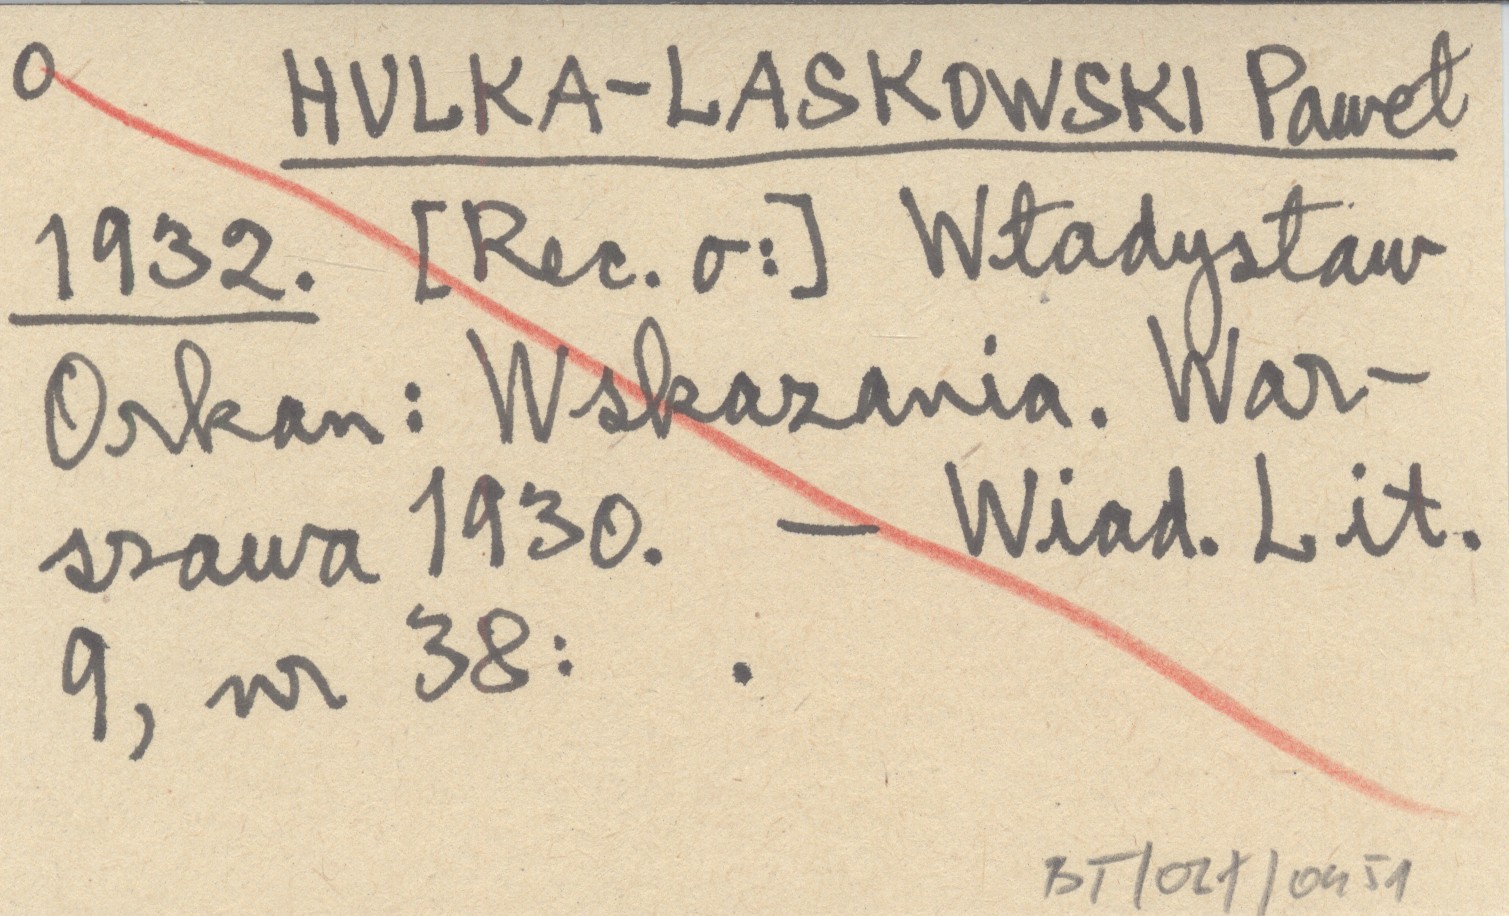 O HULKA-LASKOWSKI Paweł
1932. [Rec. o:] Władysław
Orkan: Wskazania. War-
szawa 1930. — Wiad. Lit.
9, nr 38: .